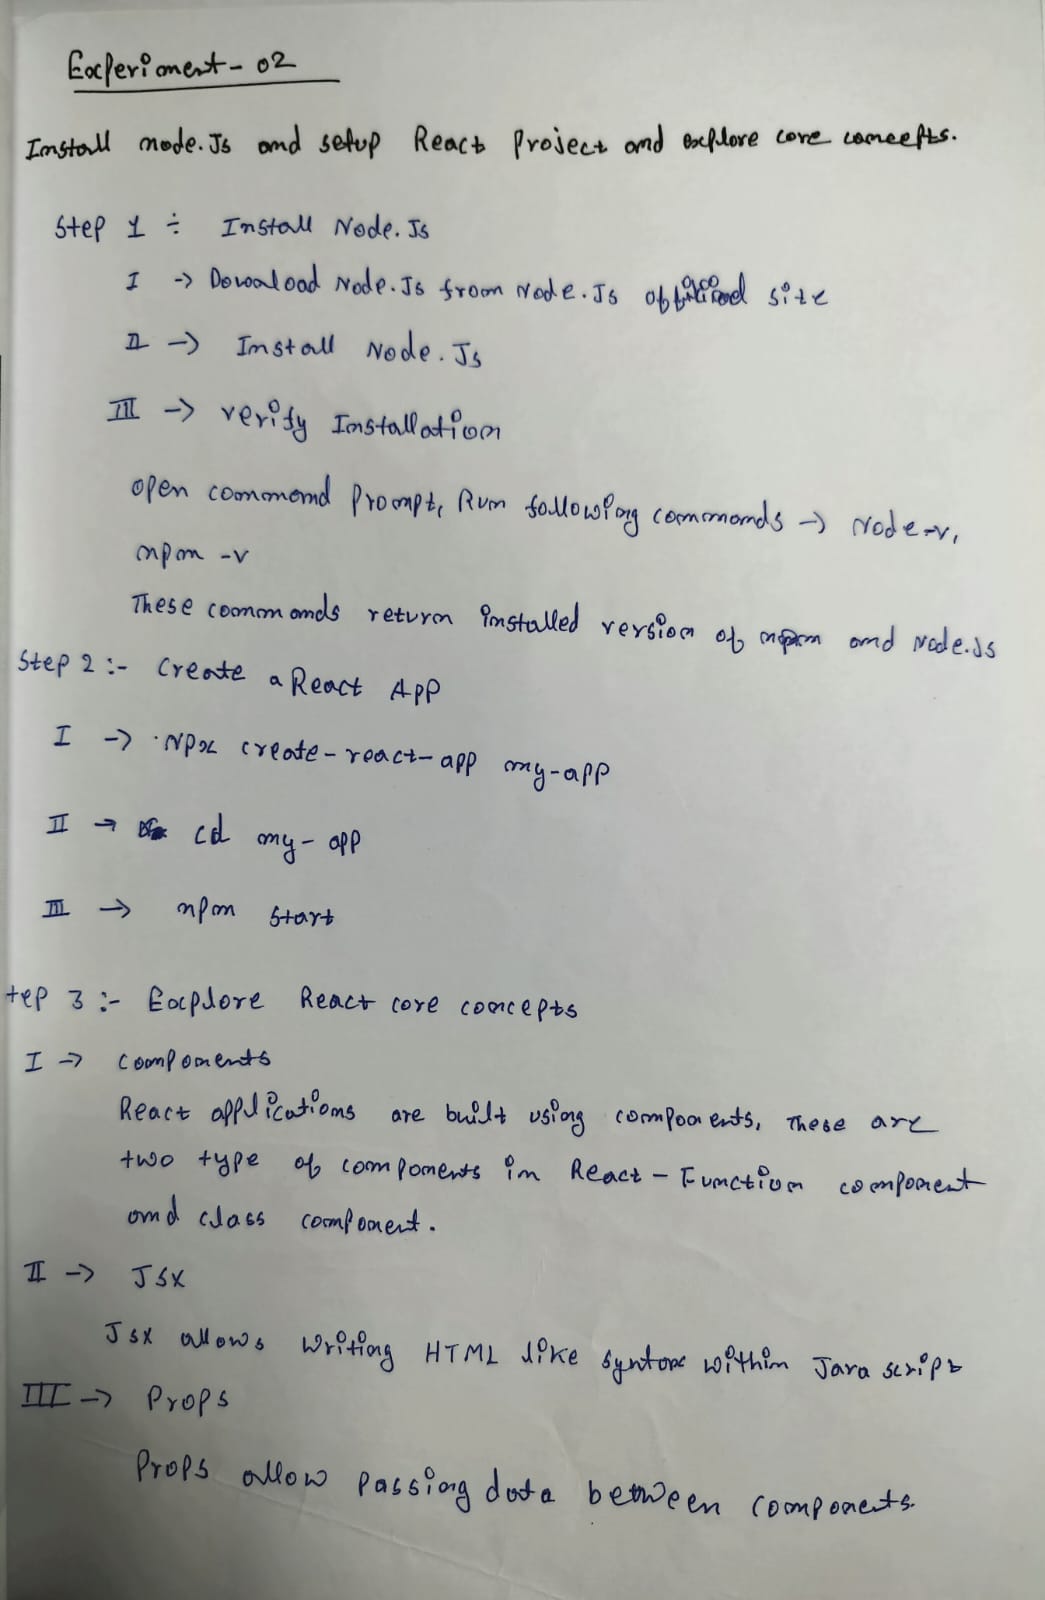 Experiment - 02
Install node.Js and setup React Project and explore core concepts.
Step 1 ÷ Install Node.Js
I -> Download Node.Js from Node.Js official site
II -> Install Node.Js
III -> verify Installation
open command Prompt, Run following commands -> Node -v,
npm -v
These commands return installed version of npm and Node.Js
Step 2 :- Create a React App
I -> Npx create-react-app my-app
II -> cd my-app
III -> npm start
tep 3 :- Explore React core concepts
I -> components
React applications are built using components, These are
two type of components in React - Function component
and class component.
II -> JSX
Jsx allows writing HTML like syntax within Java script
III -> Props
Props allow passing data between components.